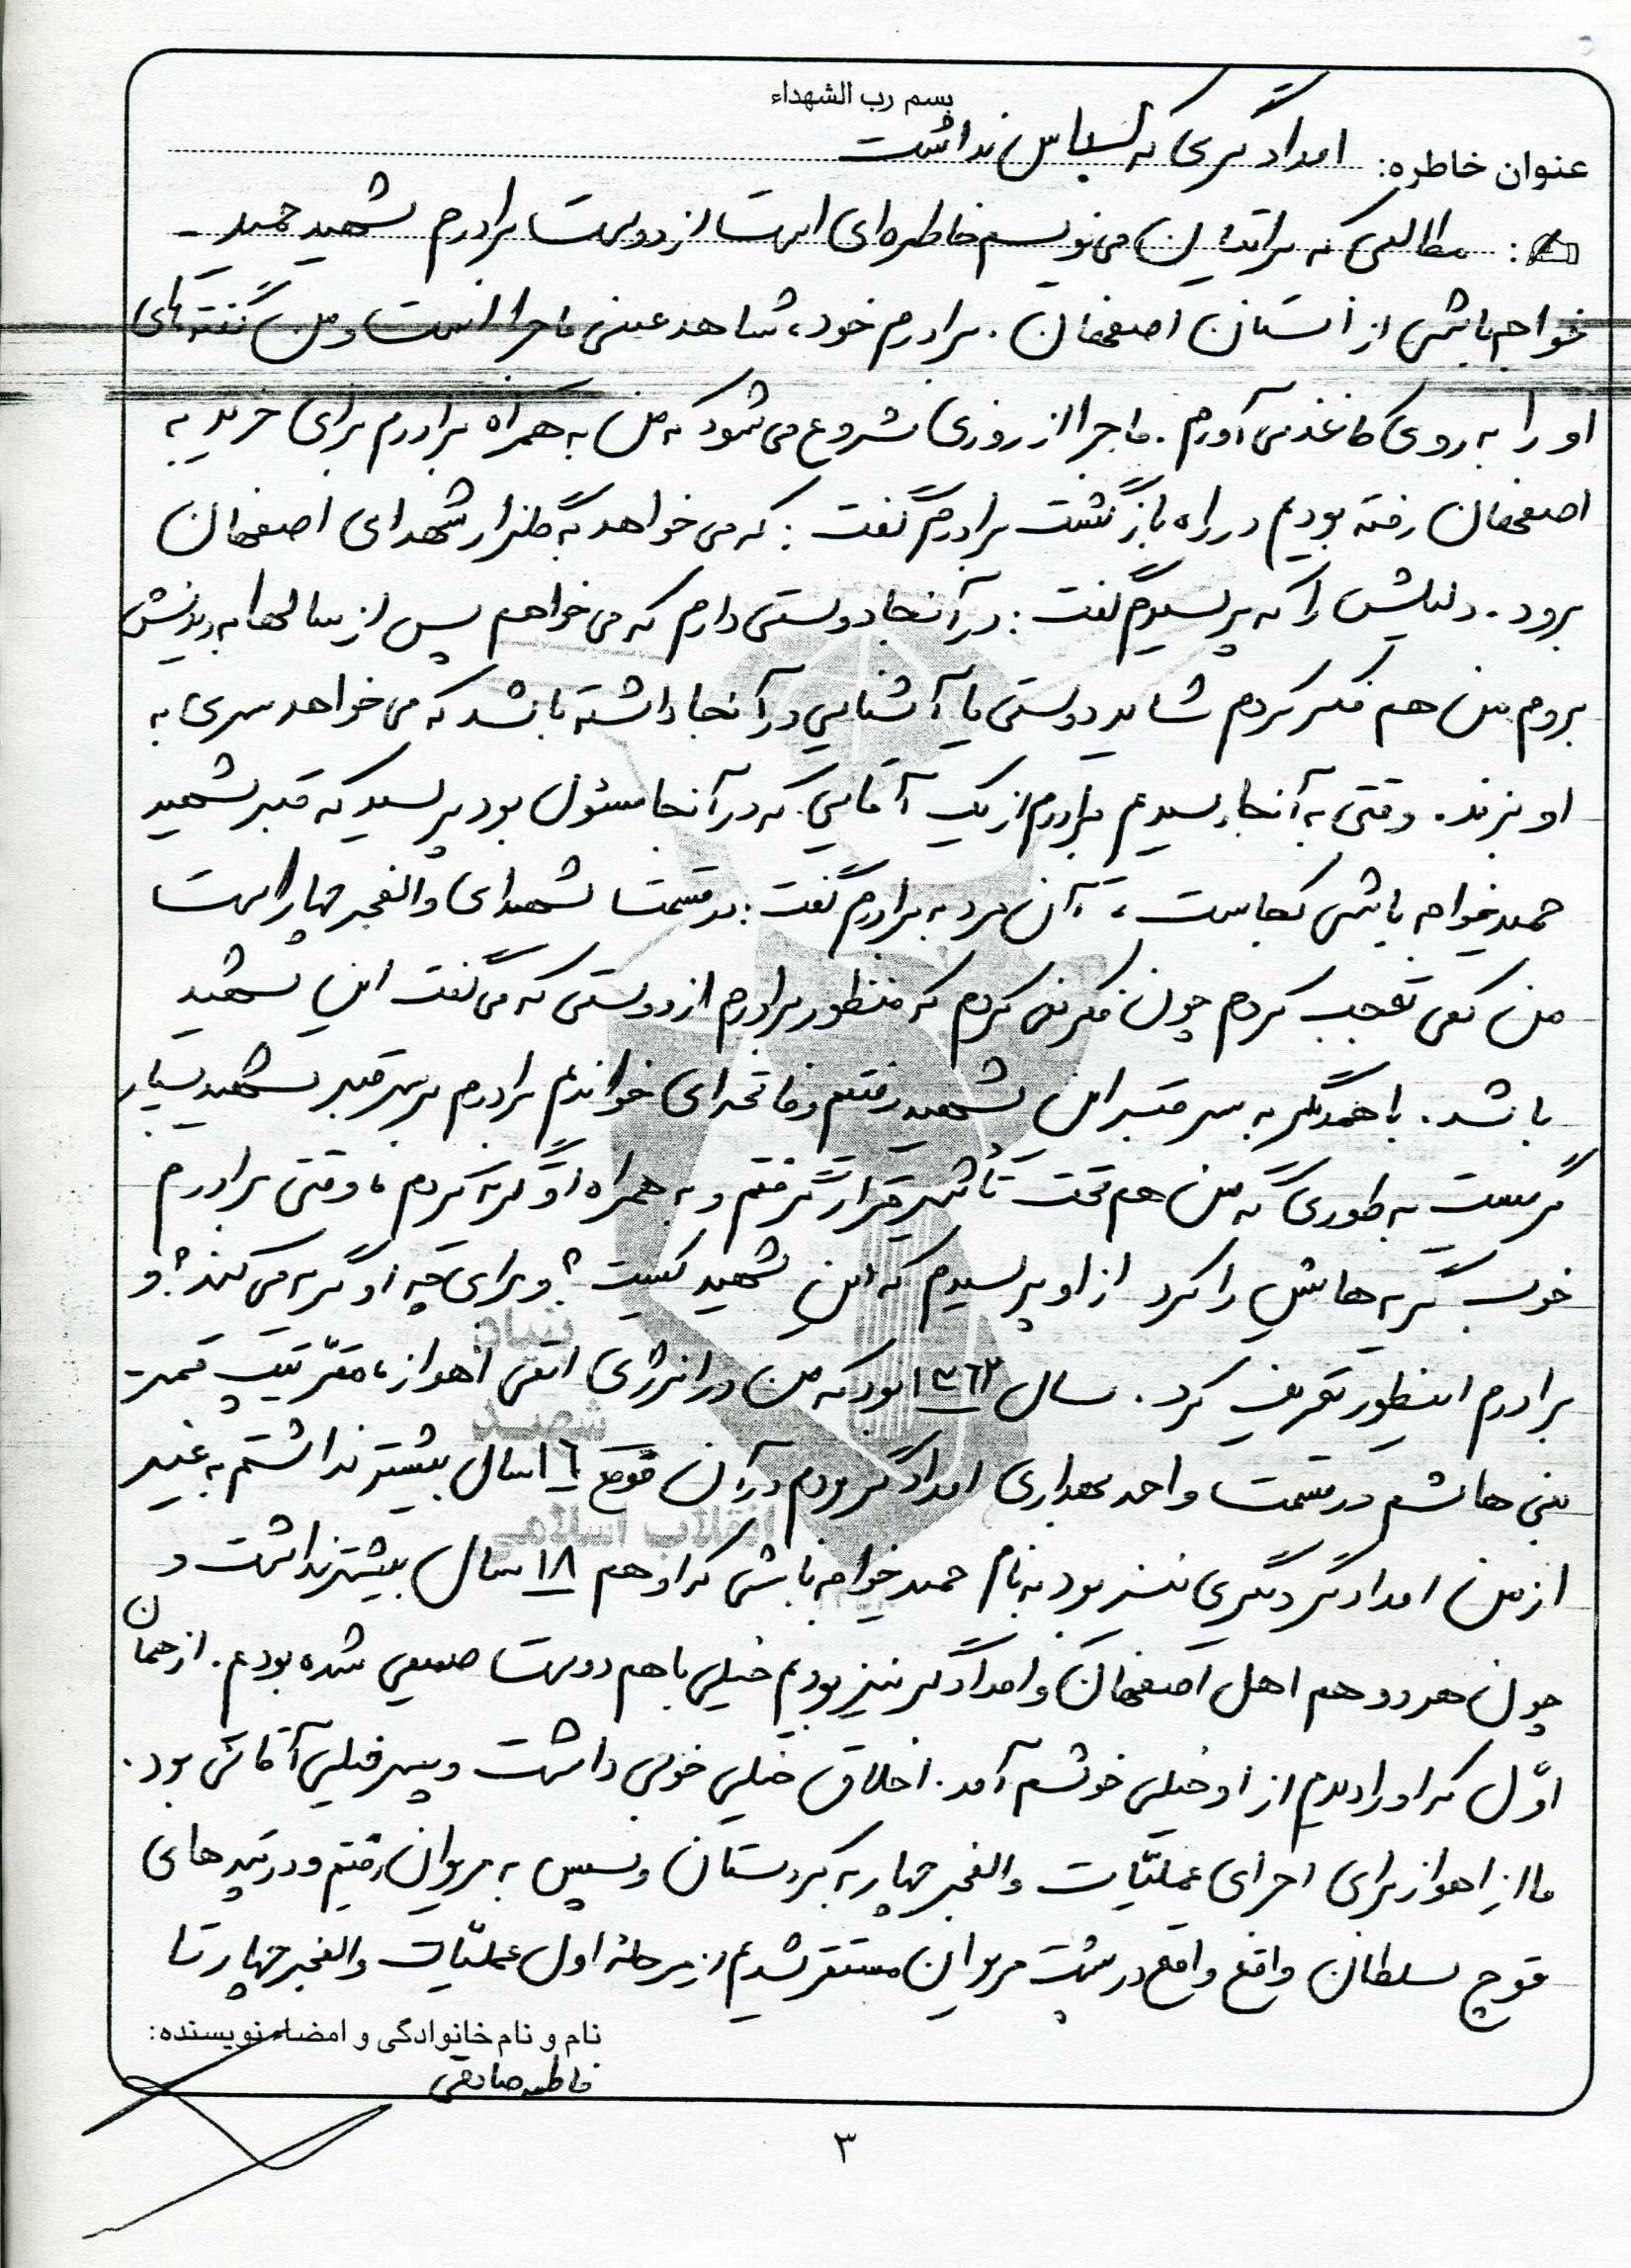 بسم رب الشهداء
عنوان خاطره: امدادگری که لباس نداشت
مطالبی که برایتان می‌نویسم خاطره‌ای است از دوست برادرم شهید حمید
خواجه‌باشی از استان اصفهان. برادرم خود، شاهد عینی ماجرا است و من گفته‌های
او را به روی کاغذ می‌آورم. ماجرا از روزی شروع می‌شود که من به همراه برادرم برای خرید به
اصفهان رفته بودیم در راه بازگشت برادرم گفت: که می‌خواهد به گلزار شهدای اصفهان
برود. دلیلش را که پرسیدم گفت: در آنجا دوستی دارم که می‌خواهم پس از سالها به دیدنش
بروم من هم فکر کردم شاید دوستی یا آشنایی در آنجا داشته باشد که می‌خواهد سری به
او بزند. وقتی به آنجا رسیدیم برادرم از یک آقایی که در آنجا مسئول بود پرسید که قبر شهید
حمید خواجه باشی کجاست، آن مرد به برادرم گفت: در قسمت شهدای والفجر چهار است
من کمی تعجب کردم چون فکر نمی کردم که منظور برادرم از دوستی که می گفت این شهید
باشد. با همدیگر به سر قبر این شهید رفتیم و فاتحه‌ای خواندیم برادرم بر سر قبر شهید بسیار
گریست به طوری که من هم تحت تأثیر قرار گرفتم و به همراه او گریه کردم، وقتی برادرم
خوب گریه هایش را کرد از او پرسیدم که این شهید کیست؟ و برای چه او گریه می کند؟ و
برادرم اینطور تعریف کرد. سال ۱۳۶۲ بود که من در انرژی اتمی اهواز، مقر تیپ قمر
بنی هاشم در قسمت واحد بهداری امدادگر بودم در آن موقع ۱۶ سال بیشتر نداشتم به غیر
از من امدادگر دیگری نیز بود به نام حمید خواجه باشی که او هم ۱۸ سال بیشتر نداشت و
چون هر دو هم اهل اصفهان و امدادگر نیز بودیم خیلی با هم دوست صمیمی شده بودیم. از همان
اوّل که او را دیدم از او خیلی خوشم آمد. اخلاق خیلی خوبی داشت و پسر خیلی آقائی بود.
ما از اهواز برای اجرای عملیّات والفجر چهار به کردستان و سپس به مریوان رفتیم و در تپه های
قوچ سلطان واقع واقع در پشت مریوان مستقر شدیم. در مرحلهٔ اول عملیّات والفجر چهار تا
نام و نام خانوادگی و امضاء نویسنده:
فاطمه صادقی
بنیاد
شهید
انقلاب اسلامی
۳